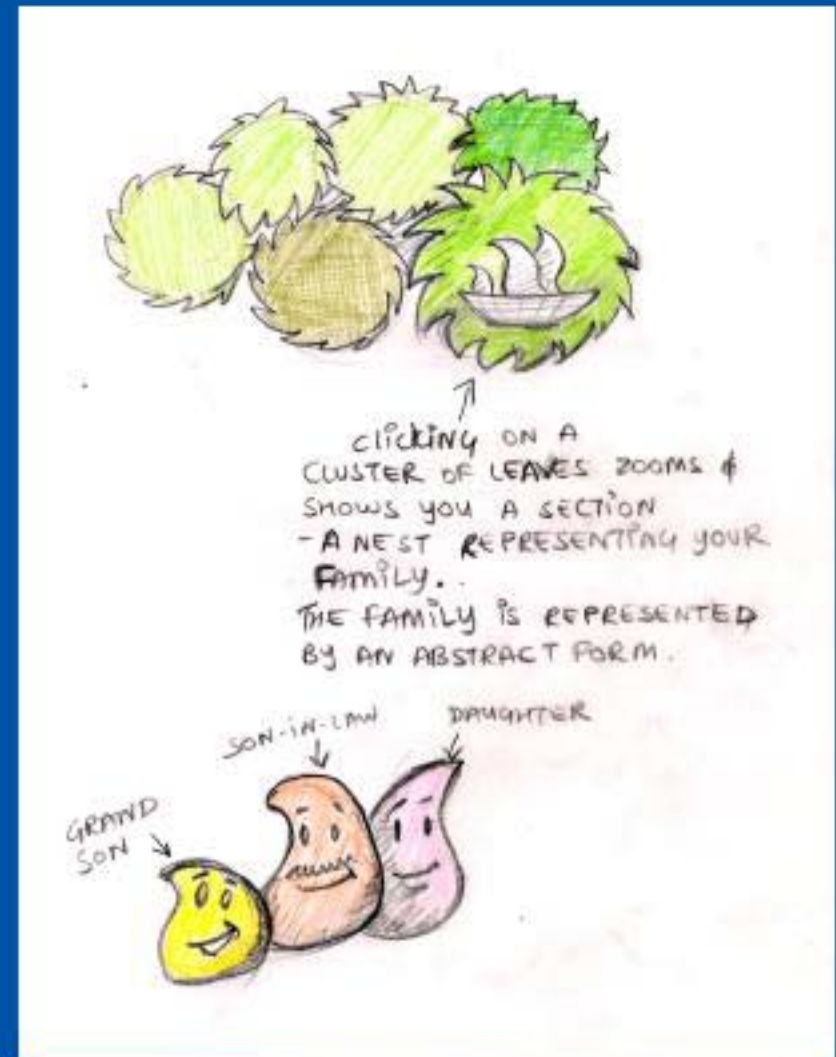 CLICKING ON A
CLUSTER OF LEAVES ZOOMS &
SHOWS YOU A SECTION
- A NEST REPRESENTING YOUR
FAMILY..
THE FAMILY IS REPRESENTED
BY AN ABSTRACT FORM.
SON-IN-LAW
DAUGHTER
GRAND
SON